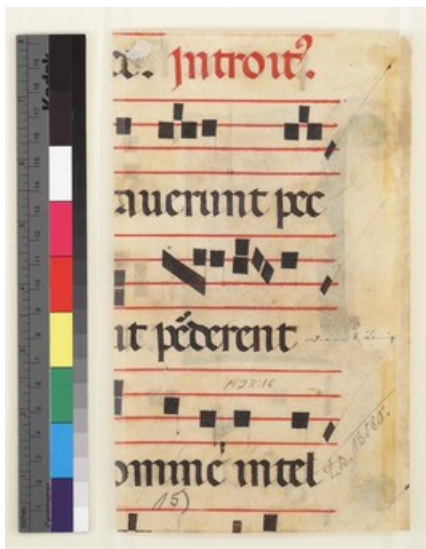 Kodak
a. Introit⁹.
auerunt pec
ut p̄derent
M 27:16
omine intel
15)